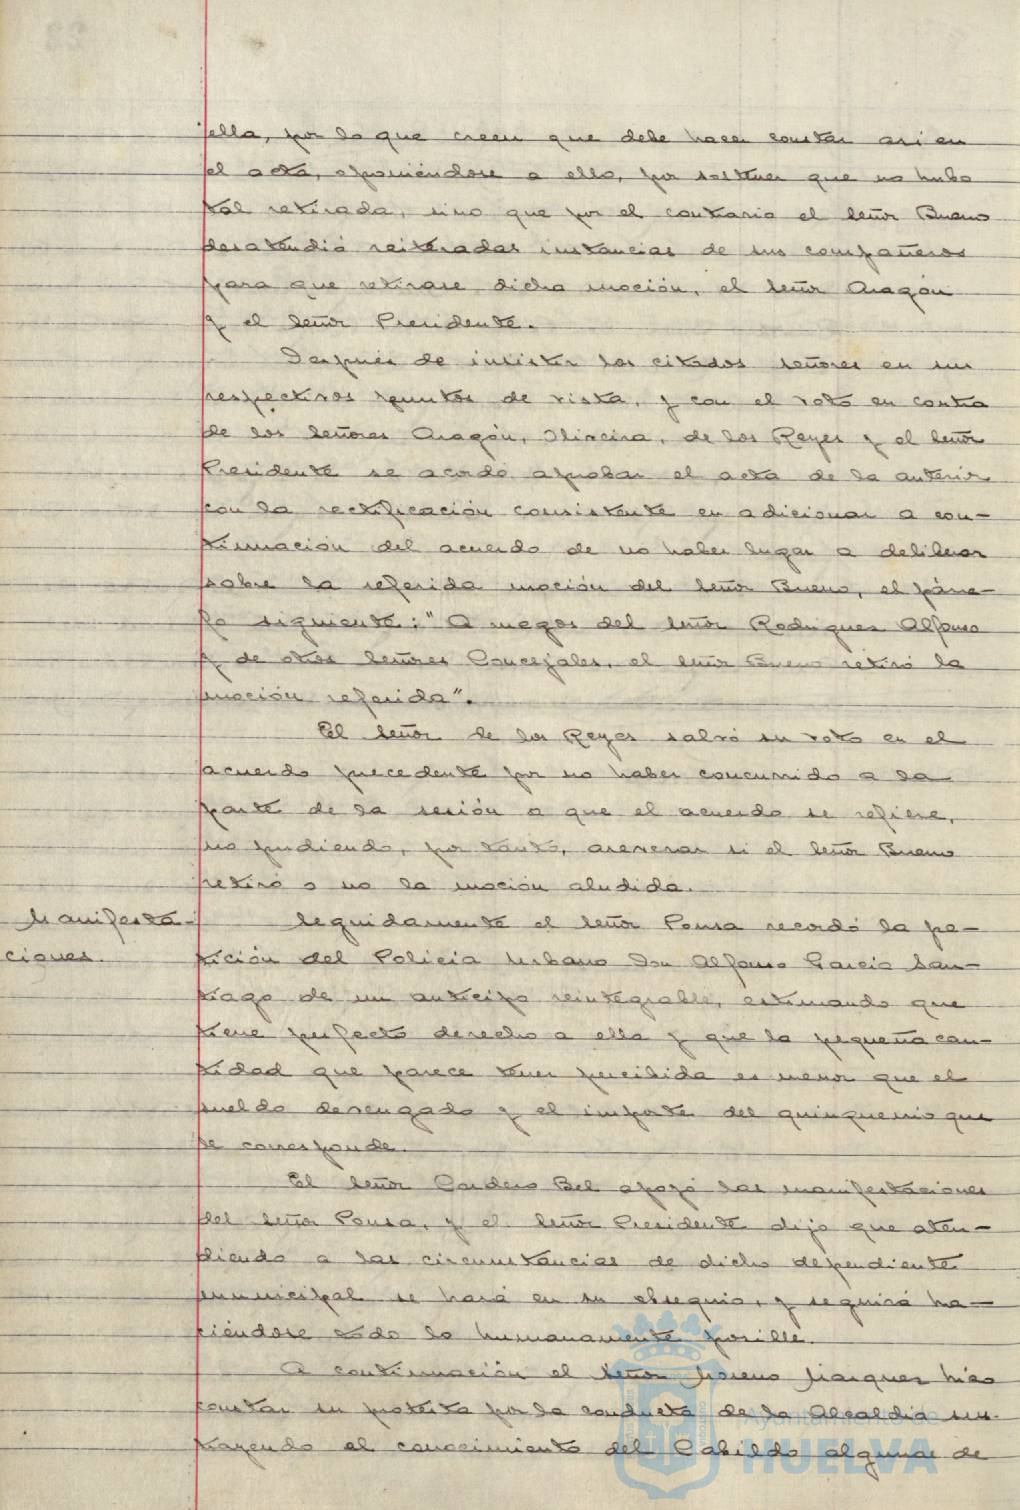 ella, por lo que creen que debe hacer constar así en
el acta, oponiéndose a ello, por sostener que no hubo
tal retirada, sino que por el contrario el Señor Bueno
desatendió reiteradas instancias de sus compañeros
para que retirase dicha moción, el Señor Aragón
y el Señor Presidente.
Después de insistir los citados señores en sus
respectivos puntos de vista, y con el voto en contra
de los Señores Aragón, Oliveira, de los Reyes y el Señor
Presidente se acordó aprobar el acta de la anterior
con la rectificación consistente en adicionar a con-
tinuación del acuerdo de no haber lugar a deliberar
sobre la referida moción del Señor Bueno, el párra-
fo siguiente: "A ruegos del Señor Rodriguez Alfonso
y de otros Señores Concejales, el Señor Bueno retiró la
moción referida".
El Señor de los Reyes salvó su voto en el
acuerdo precedente por no haber concurrido a la
parte de la sesión a que el acuerdo se refiere,
no pudiendo, por tanto, aseverar si el Señor Bueno
retiró o no la moción aludida.
Manifesta-
ciones.
Seguidamente el Señor Ponsa recordó la pe-
tición del Policia Urbano Don Alfonso Garcia San-
tiago de un anticipo reintegrable, estimando que
tiene perfecto derecho a ella y que la pequeña can-
tidad que parece tener percibida es menor que el
sueldo devengado y el importe del quinquenio que
le corresponde.
El Señor Cordero Bel apoyó las manifestaciones
del Señor Ponsa, y el Señor Presidente dijo que aten-
diendo a las circunstancias de dicho dependiente
municipal se hará en su obsequio, y seguirá ha-
ciéndose todo lo humanamente posible.
A continuación el Señor Moreno Marquez hizo
constar su protesta por la conducta de la Alcaldia sus-
trayendo al conocimiento del Cabildo algunas de
Ayuntamiento de
HUELVA